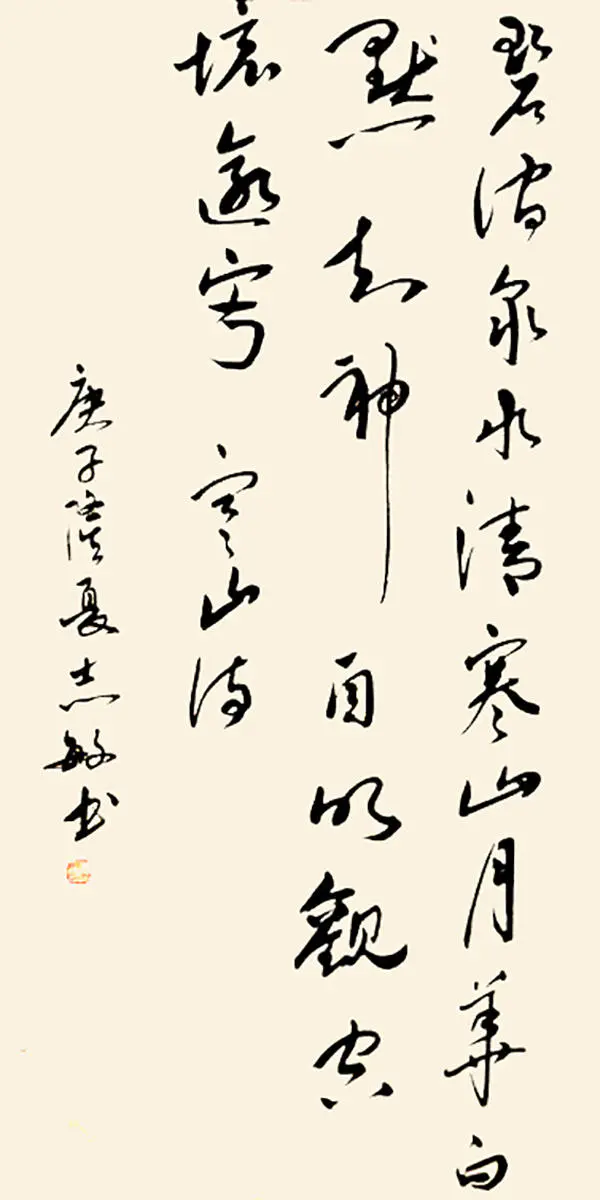 碧澗泉水清寒山月華白
默知神自明觀空
境逾寂 寒山诗
庚子夏志敏书